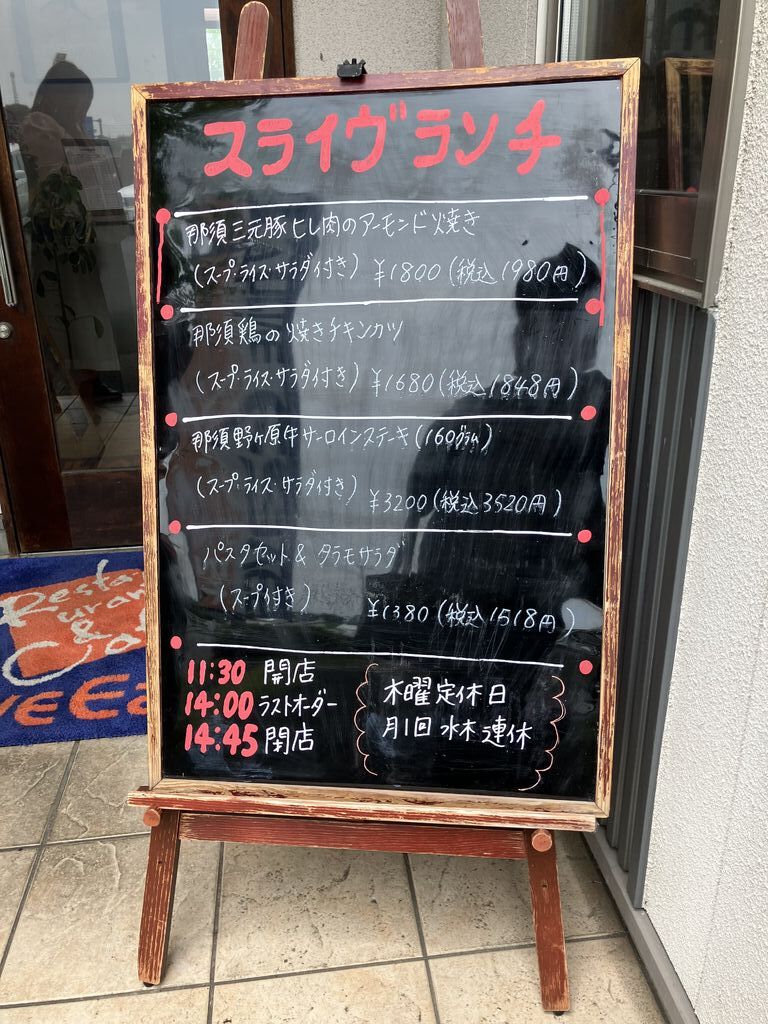 スライヴランチ
那須三元豚ヒレ肉のアーモンド焼き
(スープ・ライス・サラダ付き) ¥1800(税込1980円)
那須鶏の焼きチキンカツ
(スープ・ライス・サラダ付き) ¥1680(税込1848円)
那須野ヶ原牛サーロインステーキ(160グラム)
(スープ・ライス・サラダ付き) ¥3200(税込3520円)
パスタセット & タラモサラダ
(スープ付き) ¥1380(税込1518円)
11:30 開店
14:00 ラストオーダー
14:45 閉店
木曜定休日
月1回 水木連休
Resta
uran
&